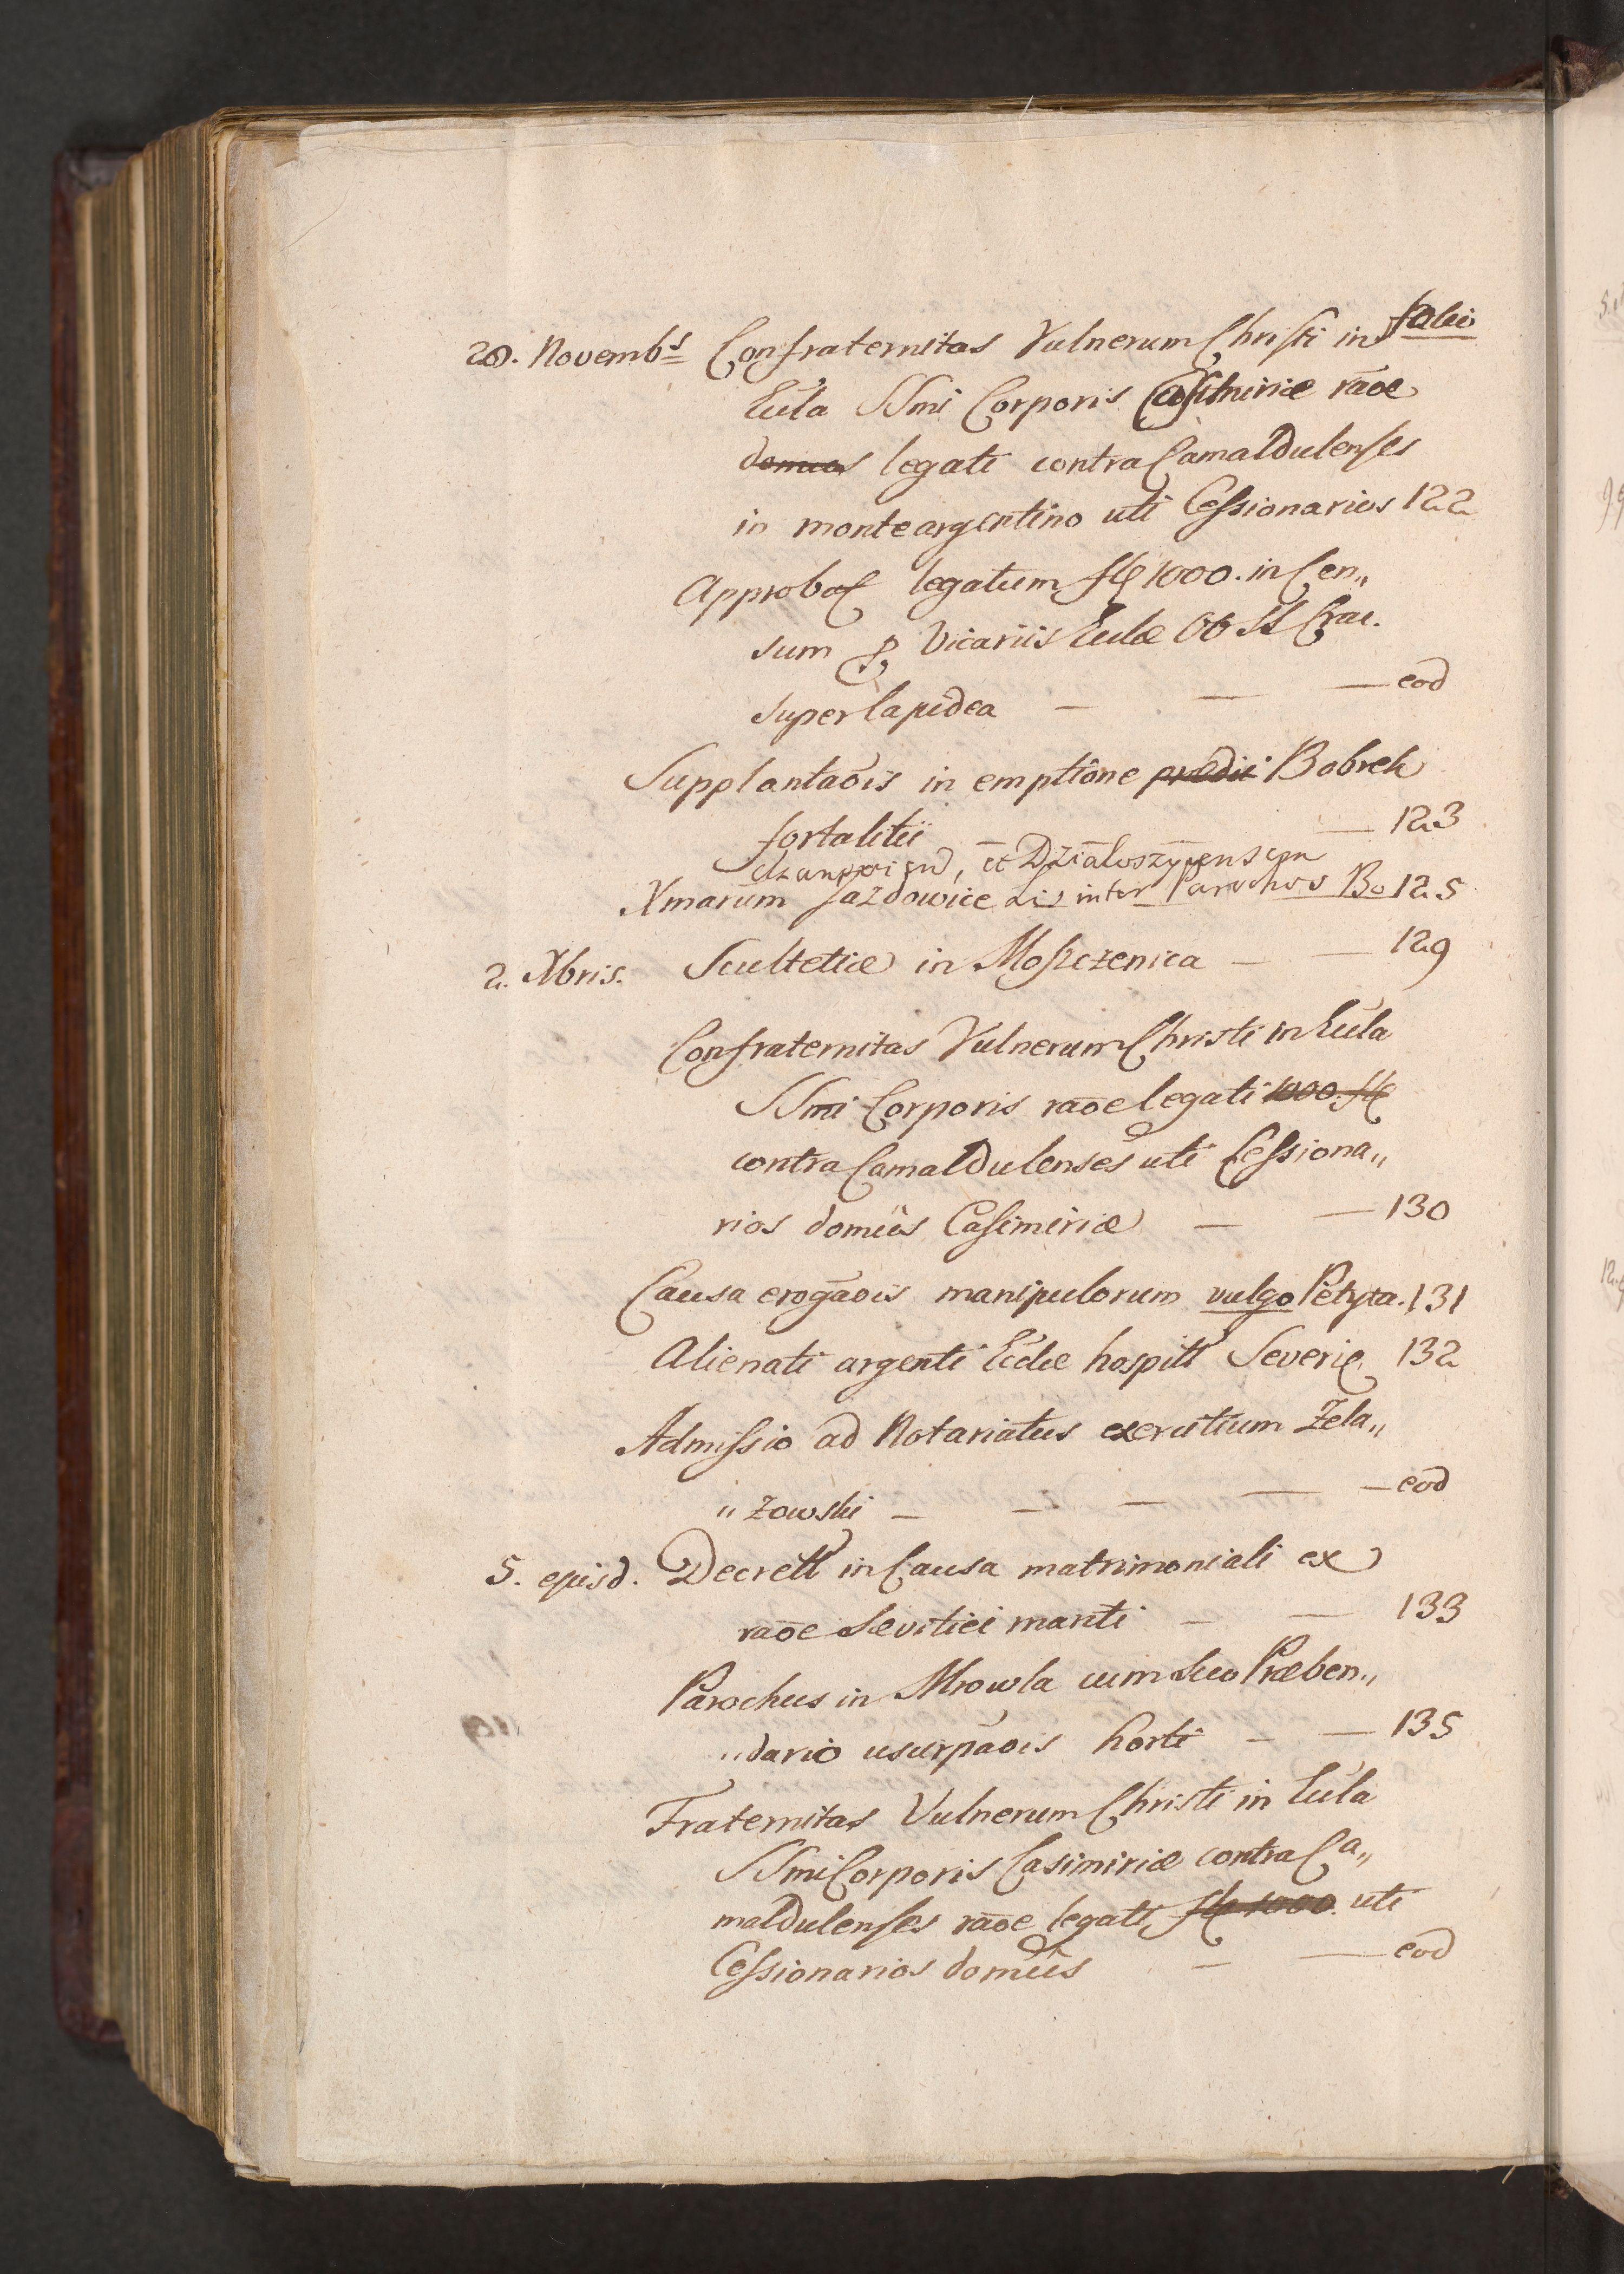 folio
28. Novembs Confraternitas Vulnerum Christi in
Eccla SSmi Corporis Casimiriæ raõe
domus legati contra Camaldulenses
in monte argentino uti Cessionarios 122
Approbat legatum fl 1000. in Cen„
sum p Vicariis Eccliæ OO SS Crac.
super lapidea — — — eod
Supplantaõis in emptione prædii Bobrek
fortalitii — — — 123
et Działoszycensem
Xmarum Jazdowice Lis inter Parochos Bo 125
2. Xbris. Scultetiæ in Moszczenica — — 129
Confraternitas Vulnerum Christi in Eccla
SSmi Corporis raõe legati 1000. fl
contra Camaldulenses uti Cessiona„
rios domûs Casimiriæ — — 130
Causa erogaõis manipulorum vulgo Petyta. 131
Alienati argenti Eccliæ hospitt Severiæ 132
Admissio ad Notariatus exercitium Zela„
„zowski — — — — — eod
5. ejusd. Decrett in Causa matrimoniali ex
raõe sævitiei mariti — — 133
Parochus in Mrowla cum suo Præben„
„dario usurpaõis horti — — 135
Fraternitas Vulnerum Christi in Eccla
SSmi Corporis Casimiriæ contra Ca„
maldulenses raõe legati fl 1000. uti
Cessionarios domûs — — eod